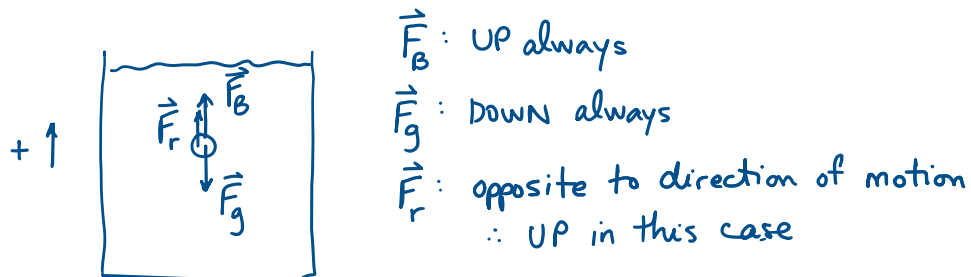 F_B : UP always
F_g : DOWN always
F_r : opposite to direction of motion
∴ UP in this case
+
F_B
F_r
F_g